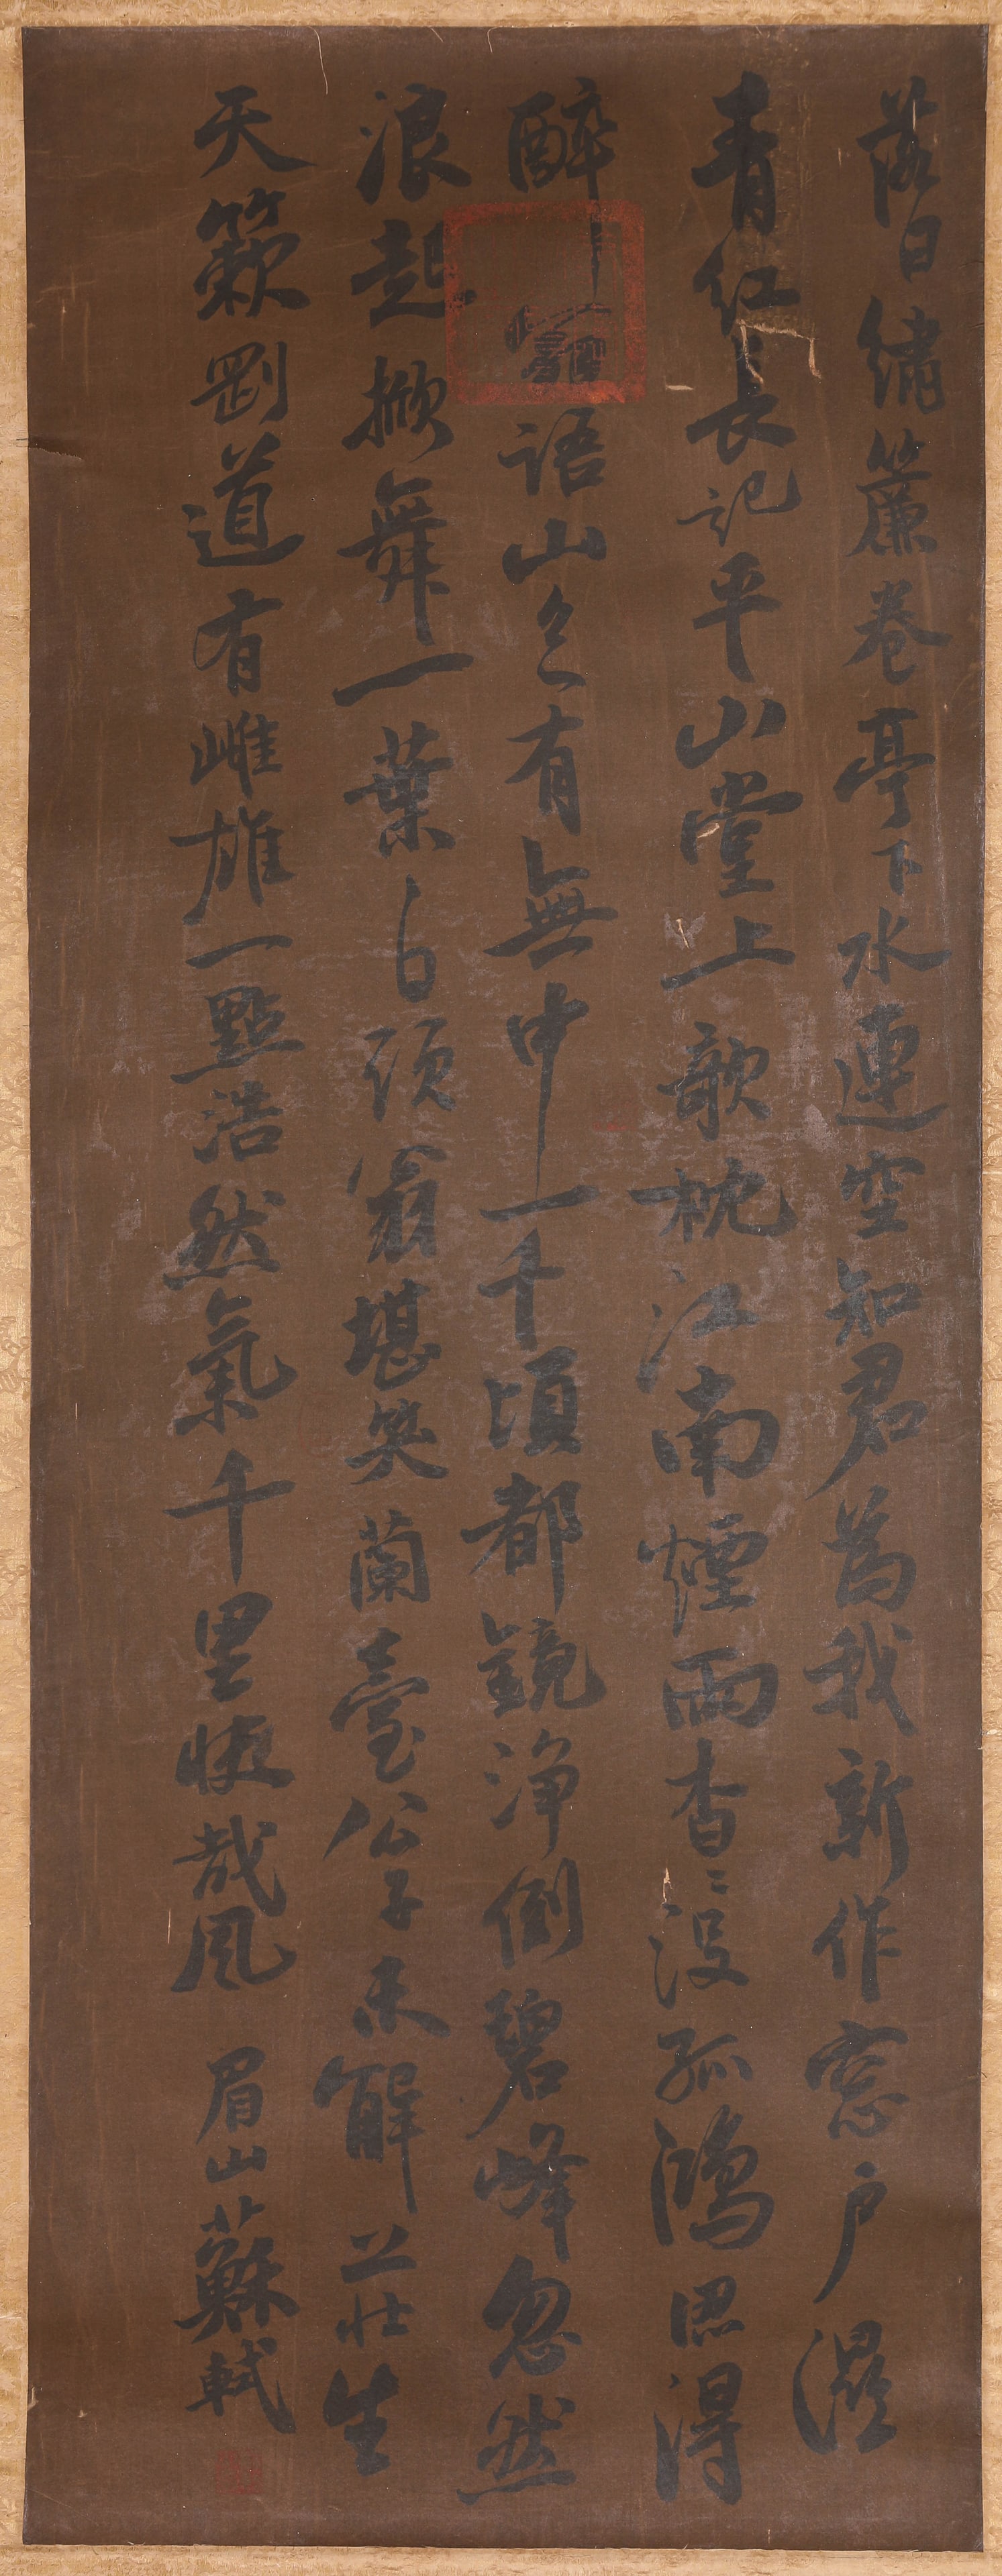 落日繡簾卷亭下水連空知君為我新作窓戶濕
青紅長記平山堂上欹枕江南煙雨杳〻沒孤鴻得
醉語山色有無中一千頃都鏡淨倒碧峰忽然
浪起掀舞一葉白頭翁堪笑蘭臺公子未解莊生
天籟剛道有雌雄一點浩然氣千里快哉風 眉山蘇軾